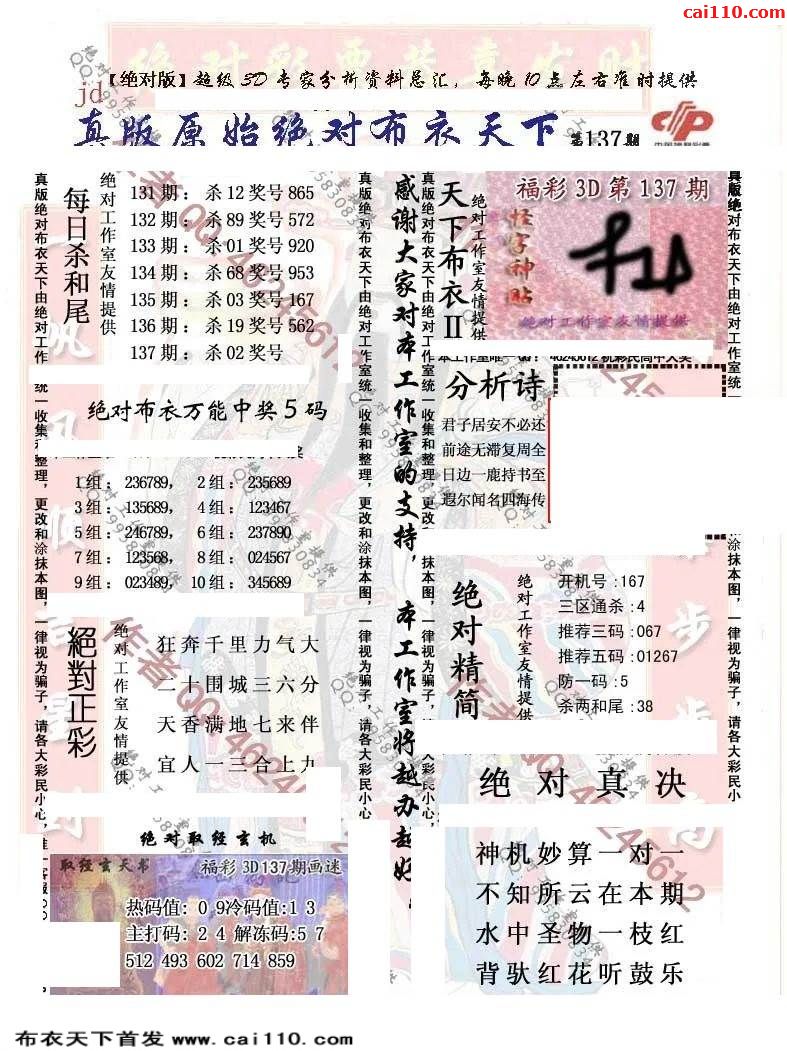 cai110.com
【绝对版】超级3D专家分析资料总汇，每晚10点左右准时提供
jd
真版原始绝对布衣天下 第137期
每日杀和尾
绝对工作室友情提供
131期：杀12奖号865
132期：杀89奖号572
133期：杀01奖号920
134期：杀68奖号953
135期：杀03奖号167
136期：杀19奖号562
137期：杀02奖号
绝对布衣万能中奖5码
1组：236789， 2组：235689
3组：135689， 4组：123467
5组：246789， 6组：237890
7组：123568， 8组：024567
9组：023489， 10组：345689
絕對正彩
绝对工作室友情提供
狂奔千里力气大
二十围城三六分
天香满地七来伴
宜人一三合上九
绝对取经玄机
取经玄天书 福彩3D137期画迷
热码值：0 9冷码值：1 3
主打码：2 4 解冻码：5 7
512 493 602 714 859
真版绝对布衣天下由绝对工作室统一收集和整理，更改和涂抹本图，一律视为骗子，请各大彩民小心
感谢大家对本工作室的支持，本工作室将越办越好
真版绝对布衣天下由绝对工作室统一收集和整理，更改和涂抹本图，一律视为骗子，请各大彩民小心
天下布衣II
绝对工作室友情提供
福彩3D第137期
怪字神贴
绝对工作室友情提供
分析诗
君子居安不必还
前途无滞复周全
日边一鹿持书至
遐尔闻名四海传
绝对精简
绝对工作室友情提供
开机号:167
三区通杀:4
推荐三码:067
推荐五码:01267
防一码:5
杀两和尾:38
绝对真决
神机妙算一对一
不知所云在本期
水中圣物一枝红
背驮红花听鼓乐
布衣天下首发 www.cai110.com